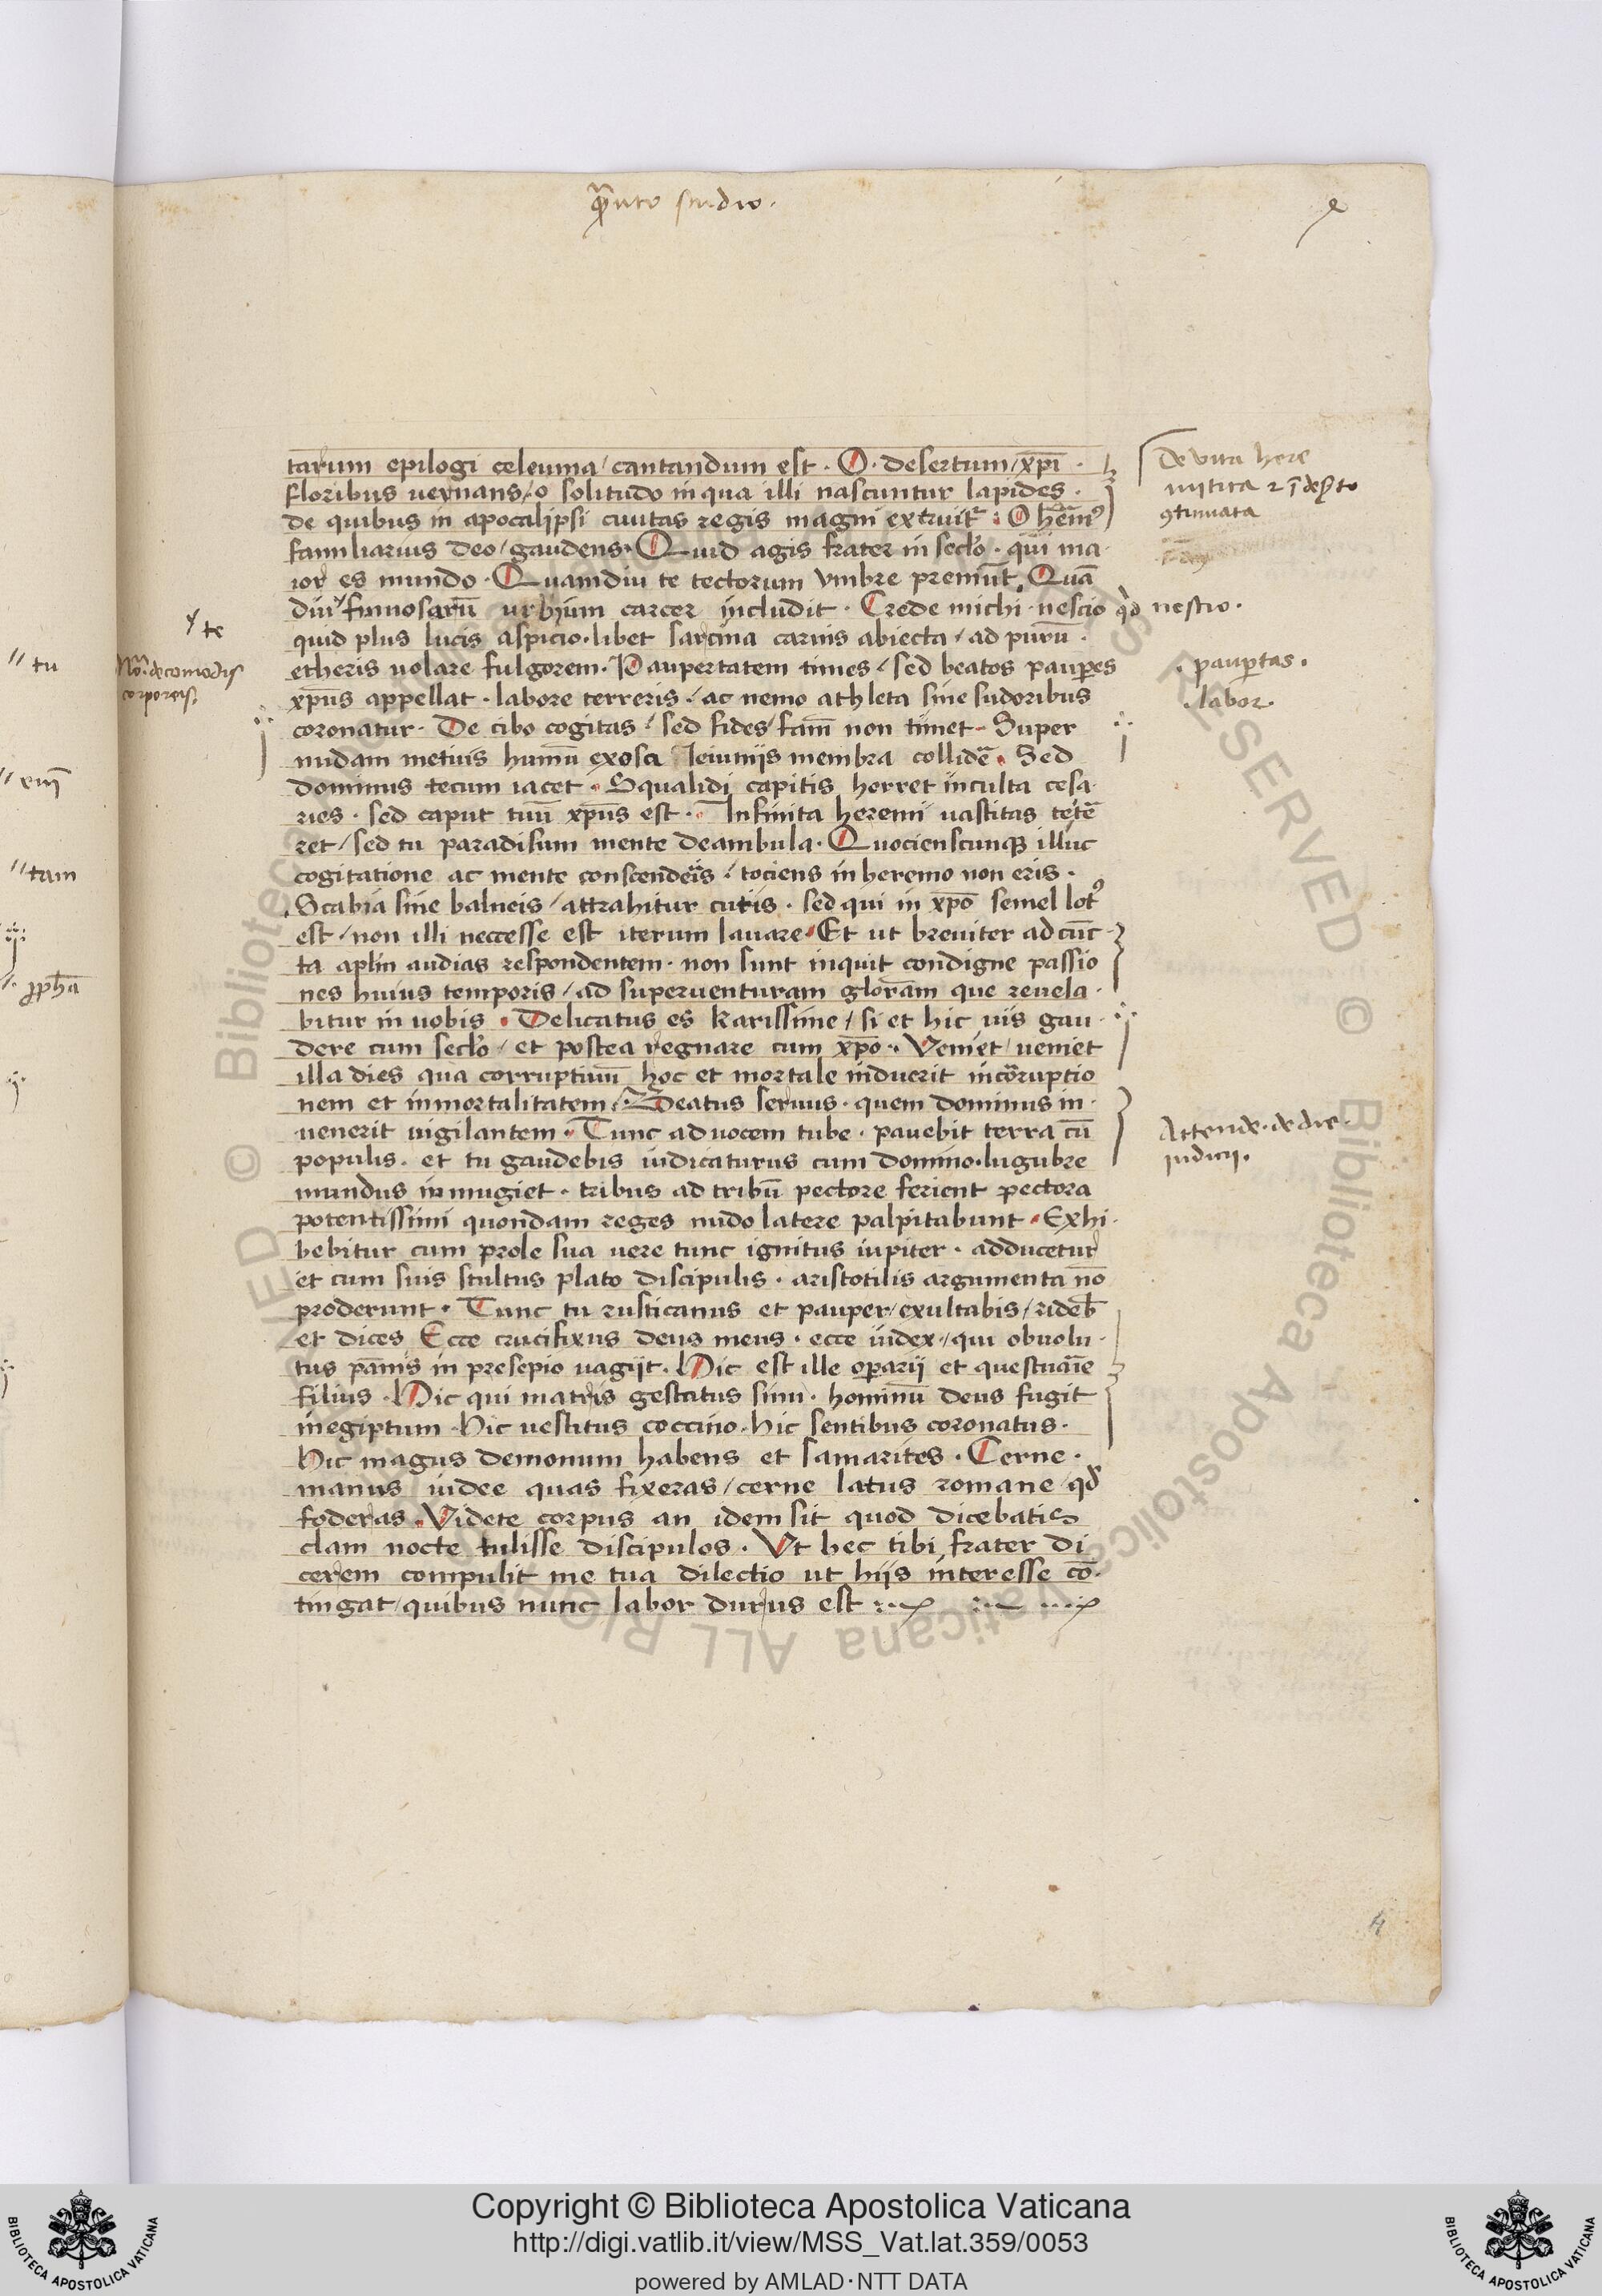 q̄nto studio.
tarum epilogi celeuma/cantandum est · O · desertum/xp̄i ·
floribus uernans/o solitudo in qua illi nascuntur lapides ·
de quibus in apocalipsi ciuitas regis magni extruit᷑ : O hem̄ꝰ
familiarius deo/gaudens · Quid agis frater in secl̓o · qui ma·
ior es mundo · Quamdiu te tectorum vmbre premūt, Quā
diu fumosarū urbium carcer includit · Crede michi · nescio
quid plus lucis aspicio · libet sarcina carnis abiecta/ad purū ·
etheris uolare fulgorem · Paupertatem times/sed beatos paup̱es
xp̄us appellat · labore terreris/ac nemo athleta sine sudoribus
coronatur · De cibo cogitas/sed fides/fam̄ non timet · Super
nudam metuis humū exosa Ieiunijs membra collidē · Sed
dominus tecum iacet · Squalidi capitis horret inculta cesa·
ries · sed caput tuū xp̄us est · Infinita heremi uastitas te tē
ret/sed tu paradisum mente deambula · Quocienscunqꝫ illuc
cogitatione ac mente conscenderis/tociens in heremo non eris ·
Scabia sine balneis/attrahitur cutis · sed qui in xp̄o semel lotꝰ
est/non illi neccesse est iterum lauare · Et ut breuiter ad cūc
ta apl̄m audias respondentem · non sunt inquit condigne passio
nes huius temporis/ad superuenturam glor̄am que reuela·
bitur in nobis · Delicatus es karissime/si et hic uis gau·
dere cum secl̓o/et postea regnare cum xp̄o · Veniet/ueniet
illa dies qua corruptiuū hoc et mortale induerit incor̄ruptio
nem et inmortalitatem/Beatus seruus · quem dominus in·
uenerit uigilantem · Tunc ad uocem tube · pauebit terra cū
populis · et tu gaudebis iudicaturus cum domino · lugubre
mundus inmugiet · tribus ad tribū pectore ferient pectora
potentissimi quondam reges nudo latere palpitabunt · Exhi·
bebitur cum prole sua uere tunc ignitus iupiter · adducetur
et cum suis stultus plato discipulis · aristotilis argumenta nō
proderunt · Tunc tu rusticanus et pauper/exultabis/rideb̄
et dices Ecce crucifixus deus meus · ecce iudex/qui obuolu·
tus pannis in presepio uagijt · Hic est ille op̱arij et questuar̄ie
filius · Hic qui matris gestatus sinu · hominū deus fugit
inegiptum · Hic uestitus coccino · hic sentibus coronatus ·
Hic magus demonum habens et samarites · Cerne ·
manus iudee quas fixeras/cerne latus romane/qd̓
foderas · Videte corpus an idem sit quod dicebatis
clam nocte tulisse discipulos · Vt hec tibi frater di
cerem compulit me tua dilectio ut hijs interesse cō·
tingat/quibus nunc labor durus est
De vita here
mitica
ꝯtinuata
nescio.
. paup̱tas .
. labor .
Attende . de die .
judicij .
te
No᷑. de comodis
corporis.
tu
tam
4
Copyright © Biblioteca Apostolica Vaticana
http://digi.vatlib.it/view/MSS_Vat.lat.359/0053
powered by AMLAD·NTT DATA
BIBLIOTECA APOSTOLICA VATICANA
BIBLIOTECA APOSTOLICA VATICANA